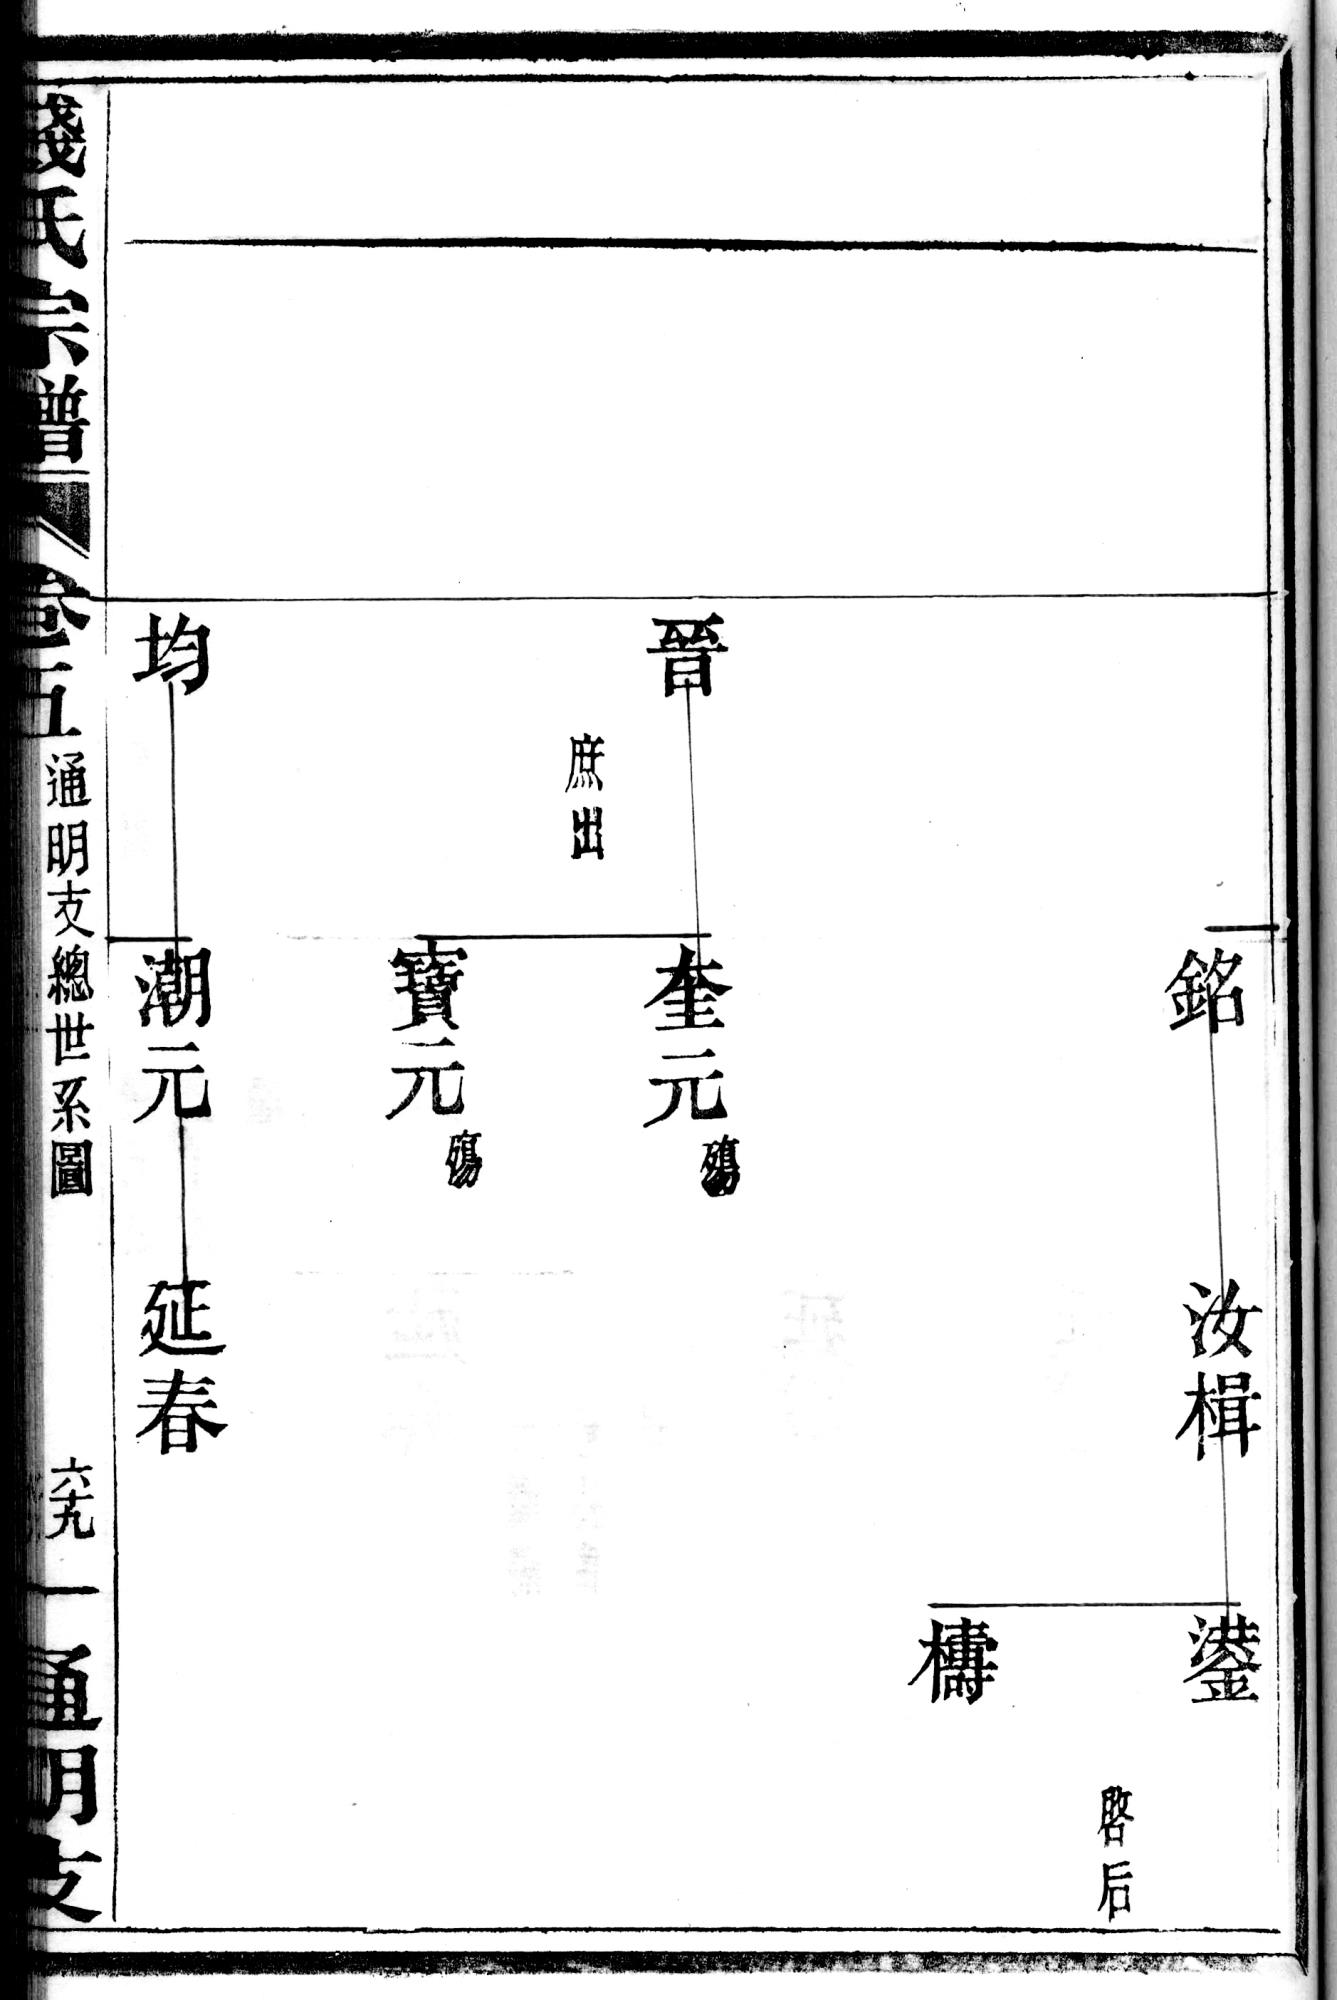 銘
汝楫
鍙
啓后
檮
晉
奎元
殤
庶出
寶元
殤
均
潮元
延春
錢氏宗譜
卷五
通明支總世系圖
六十九
通明支